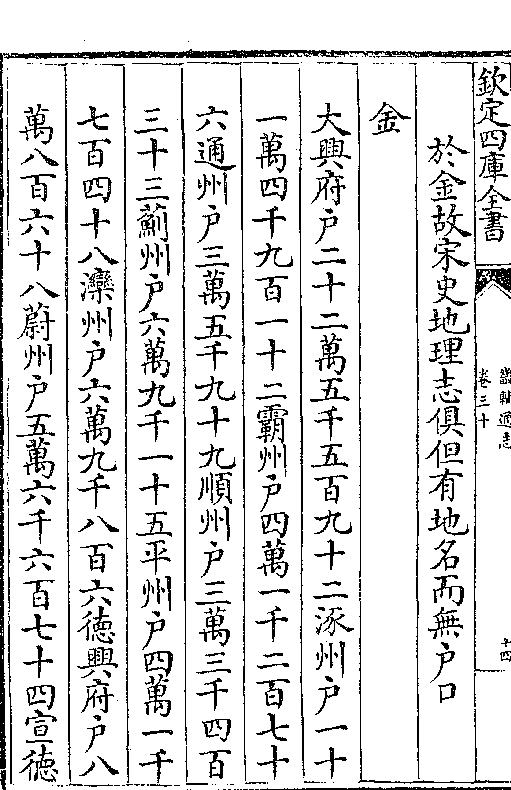 欽定四庫全書
畿輔通志
卷三十
十四
於金故宋史地理志俱但有地名而無户口
金
大興府户二十二萬五千五百九十二涿州户一十
一萬四千九百一十二霸州户四萬一千二百七十
六通州户三萬五千九十九順州户三萬三千四百
三十三薊州户六萬九千一十五平州户四萬一千
七百四十八灤州户六萬九千八百六德興府户八
萬八百六十八蔚州户五萬六千六百七十四宣德